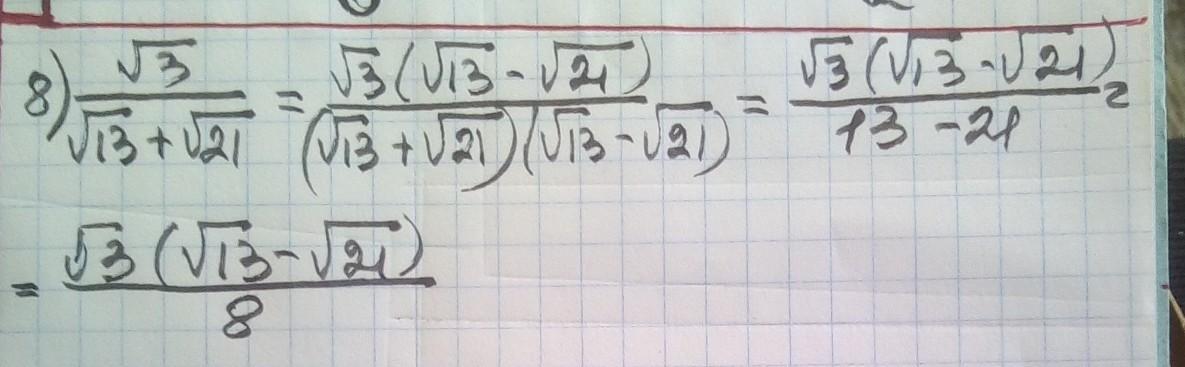 8) √3/(√13 + √21) = √3(√13 - √21)/((√13 + √21)(√13 - √21)) = √3(√13 - √21)/(13 - 21) =
= √3(√13 - √21)/8